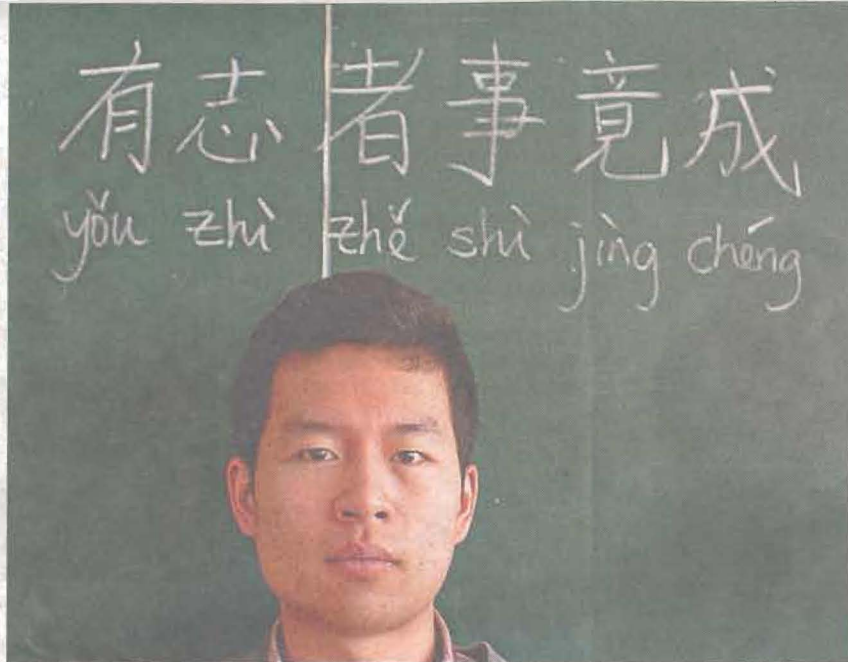 有志者事竟成
yǒu zhì zhě shì jìng chéng